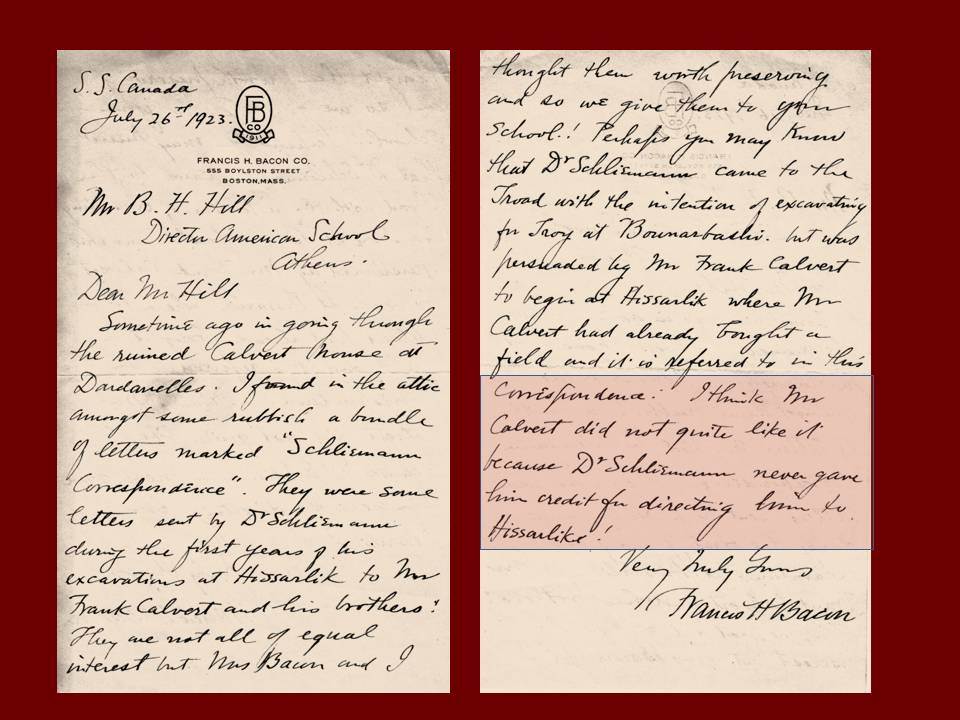 S.S. Canada
July 26th 1923.
FB
CO
1911
FRANCIS H. BACON CO.
555 BOYLSTON STREET
BOSTON, MASS.
Mr B. H. Hill
Director American School
Athens.
Dear Mr Hill
Sometime ago in going through
the ruined Calvert House at
Dardanelles. I found in the attic
amongst some rubbish a bundle
of letters marked "Schliemann
Correspondence". They were some
letters sent by Dr Schliemann
during the first years of his
excavations at Hissarlik to Mr
Frank Calvert and his brothers.
They are not all of equal
interest but Mrs Bacon and I
thought them worth preserving
and so we give them to your
School.! Perhaps you may know
that Dr Schliemann came to the
Troad with the intention of excavating
for Troy at Bounarbashi. but was
persuaded by Mr Frank Calvert
to begin at Hissarlik where Mr
Calvert had already bought a
field and it is referred to in this
correspondence. I think Mr
Calvert did not quite like it
because Dr Schliemann never gave
him credit for directing him to
Hissarlik!
Very truly yours
Francis H Bacon